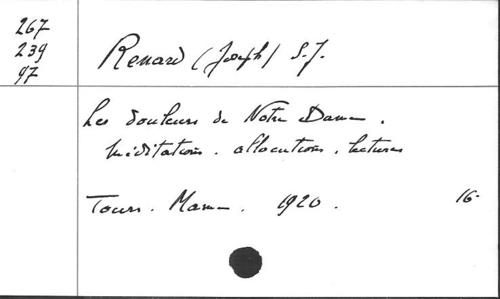 267
239
97
Renard (Joseph) S.J.
Les douleurs de Notre Dame.
Méditations. allocutions. lectures
Tours. Mame. 1920. 16-